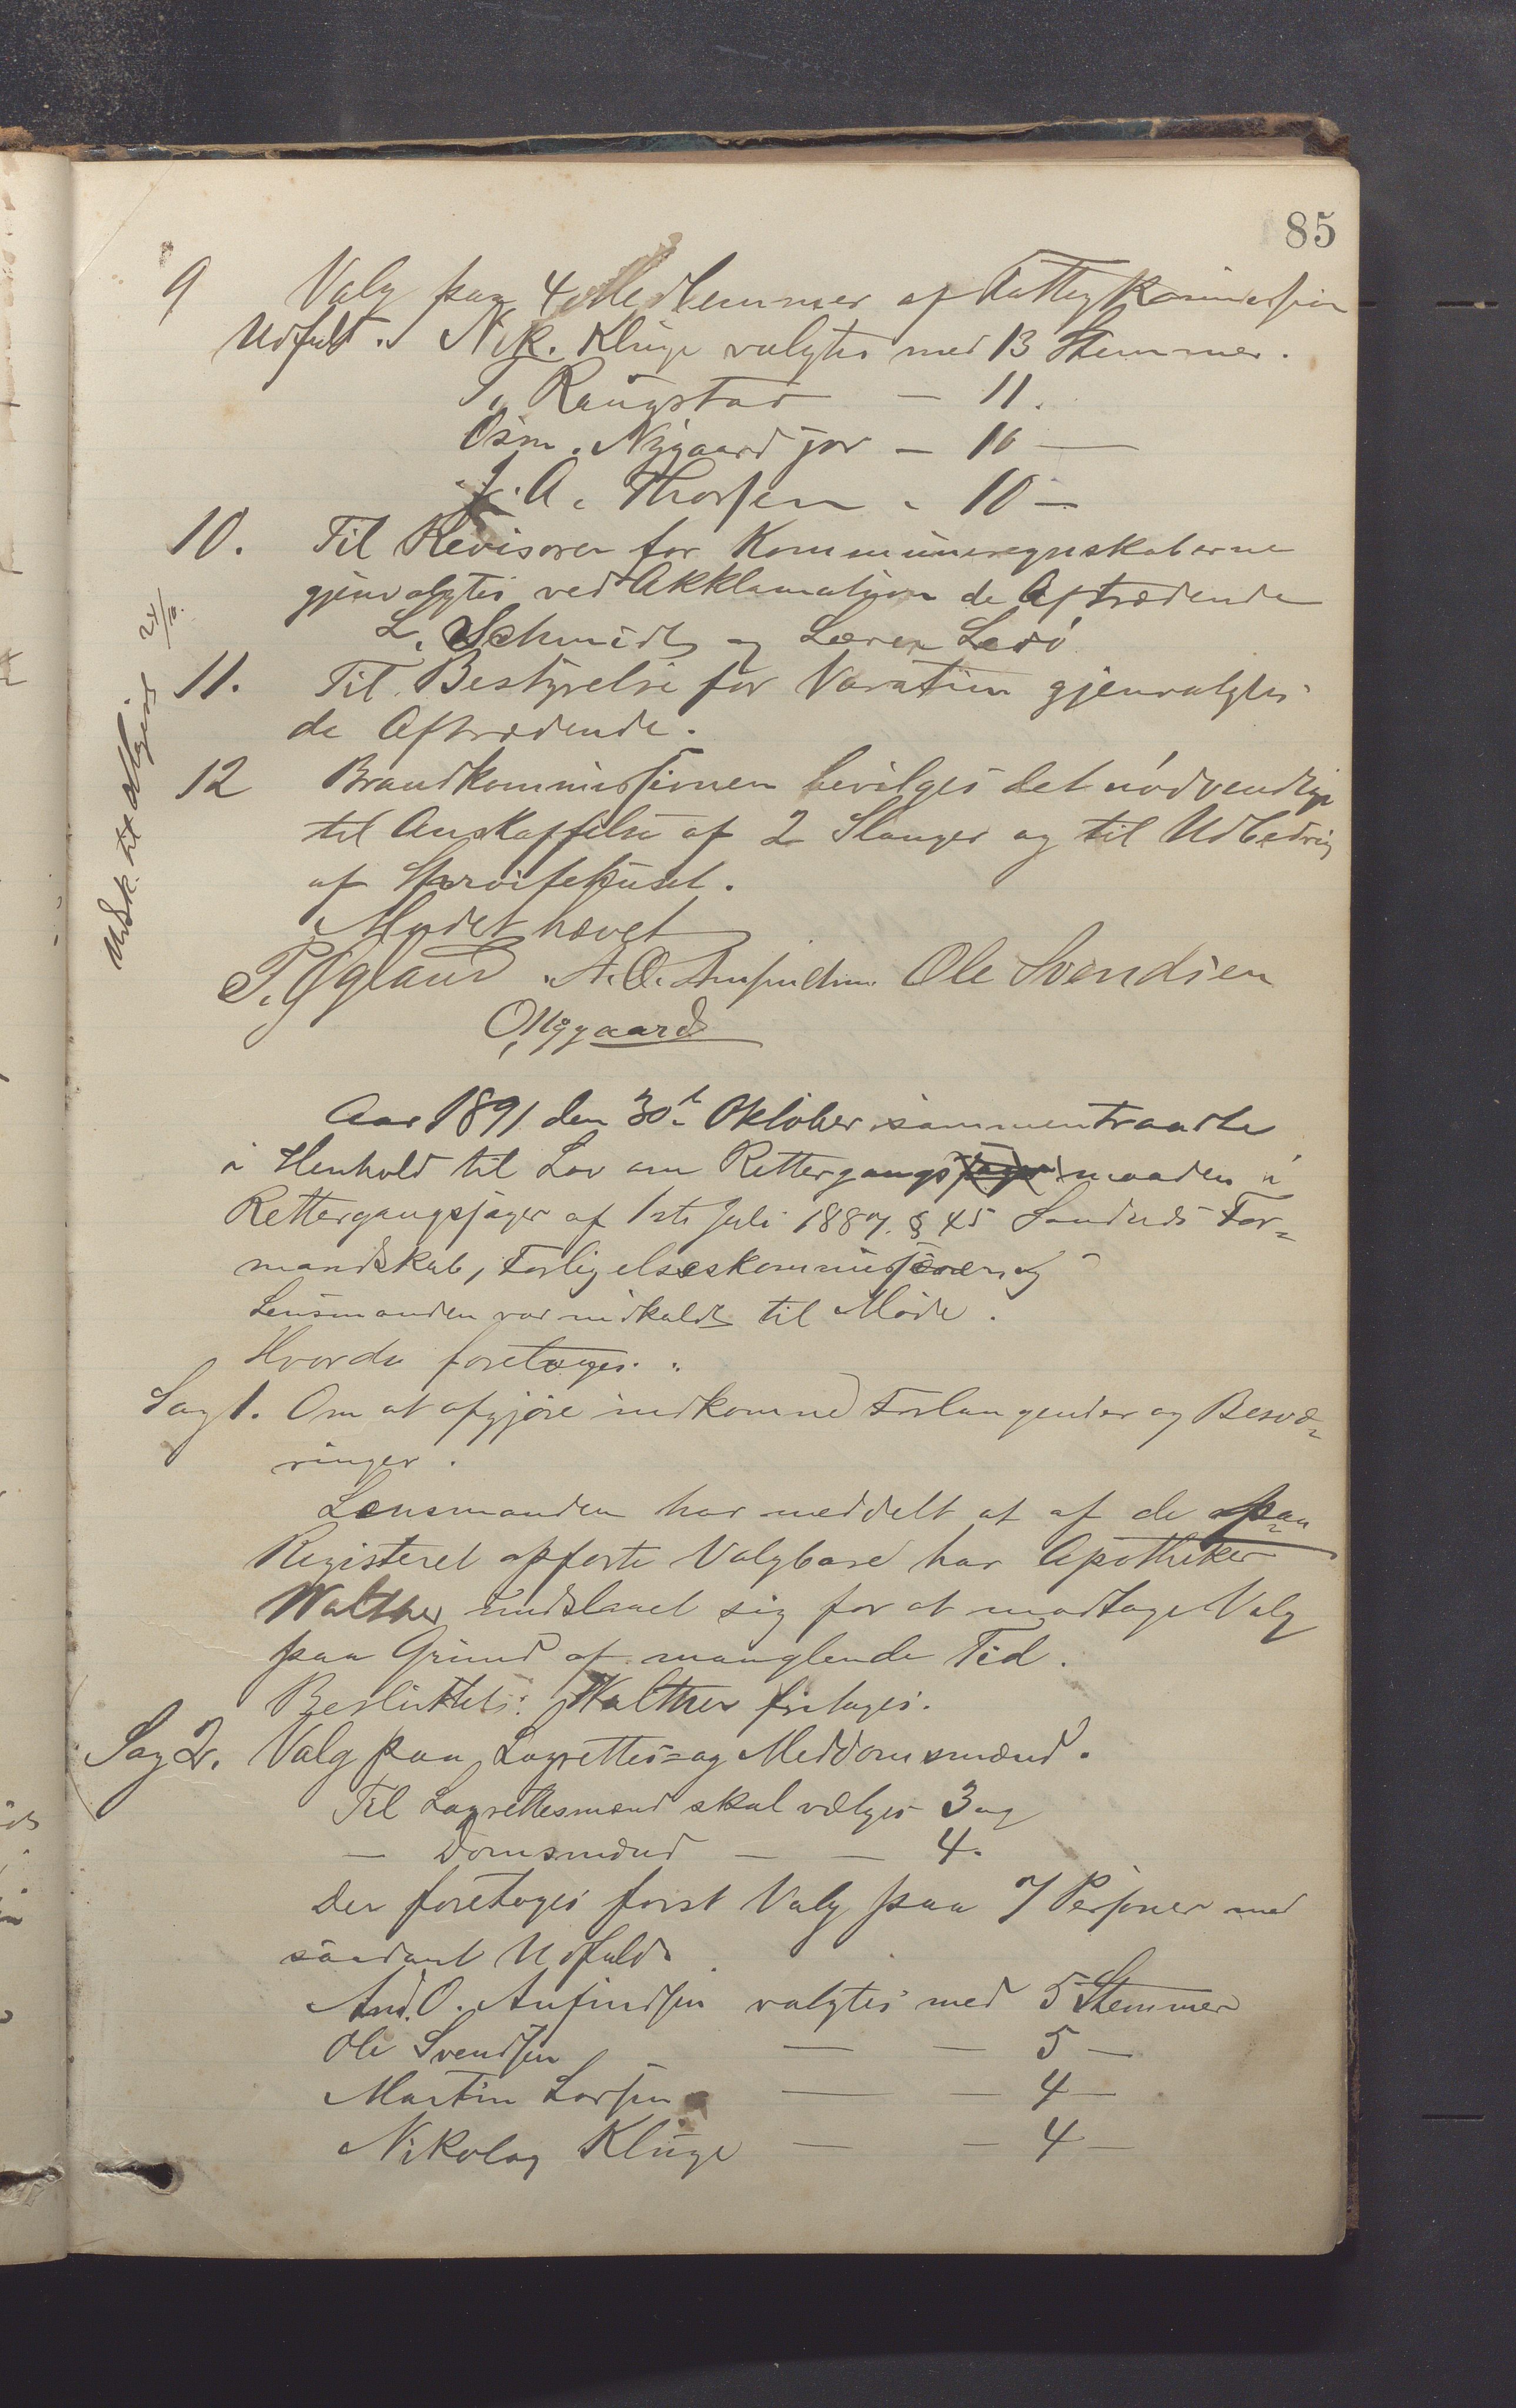 85
9 Valg paa 4 Medlemmer af Fattigkommission
Udfald. Nik. Kluge valgtes med 13 Stemmer.
T. Raugstad — 11.
Osm. Nygaard jor — 10 —
J. A. Thorsen - 10 —
10. Til Revisorer for Kommuneregnskaberne
gjenvalgtes ved Akklamation de Aftrædende
L. Schmidt og Lærer Ledö
11. Til Bestyrelse for gjenvalgtes
de Aftrædende.
12 Brandkommissionen bevilges det nödvendige
til Anskaffelse af 2 Slanger og til Udbedring
af Spröitehuset.
Mödet hævet
Udsk. til 24/10.
T. Ogland A. O. Anfindsen Ole Svendsen
O. Nygaard
Aar 1891 den 30te Oktober sammentraadte
i Henhold til Lov om Rettergangsmaaden i
Rettergangssager af 1ste Juli 1887. § 45 Sandnes For-
mandskab, Forligelseskommissærer og
Lensmanden var indkaldt til Möde.
Hvorda foretoges:
Sag 1. Om at afgjöre indkomne Forlangender og Besvæ-
ringer.
Lensmanden har meddelt at af de paa
Registeret opförte Valgbare har Apotheker
Walther undslaaet sig for at modtage Valg
paa Grund af manglende Tid.
Besluttet: Walther fritages.
Sag 2. Valg paa Lagrettes- og Meddomsmænd.
Til Lagrettesmænd skal vælges 3 og
— Domsmænd — — 4.
Der foretoges först Valg paa 7 Personer med
saadant Udfald.
And. O. Anfindsen valgtes med 5 Stemmer
Ole Svendsen — — 5 —
Martin Larsen — — 4 —
Nikolay Kluge — — 4 —